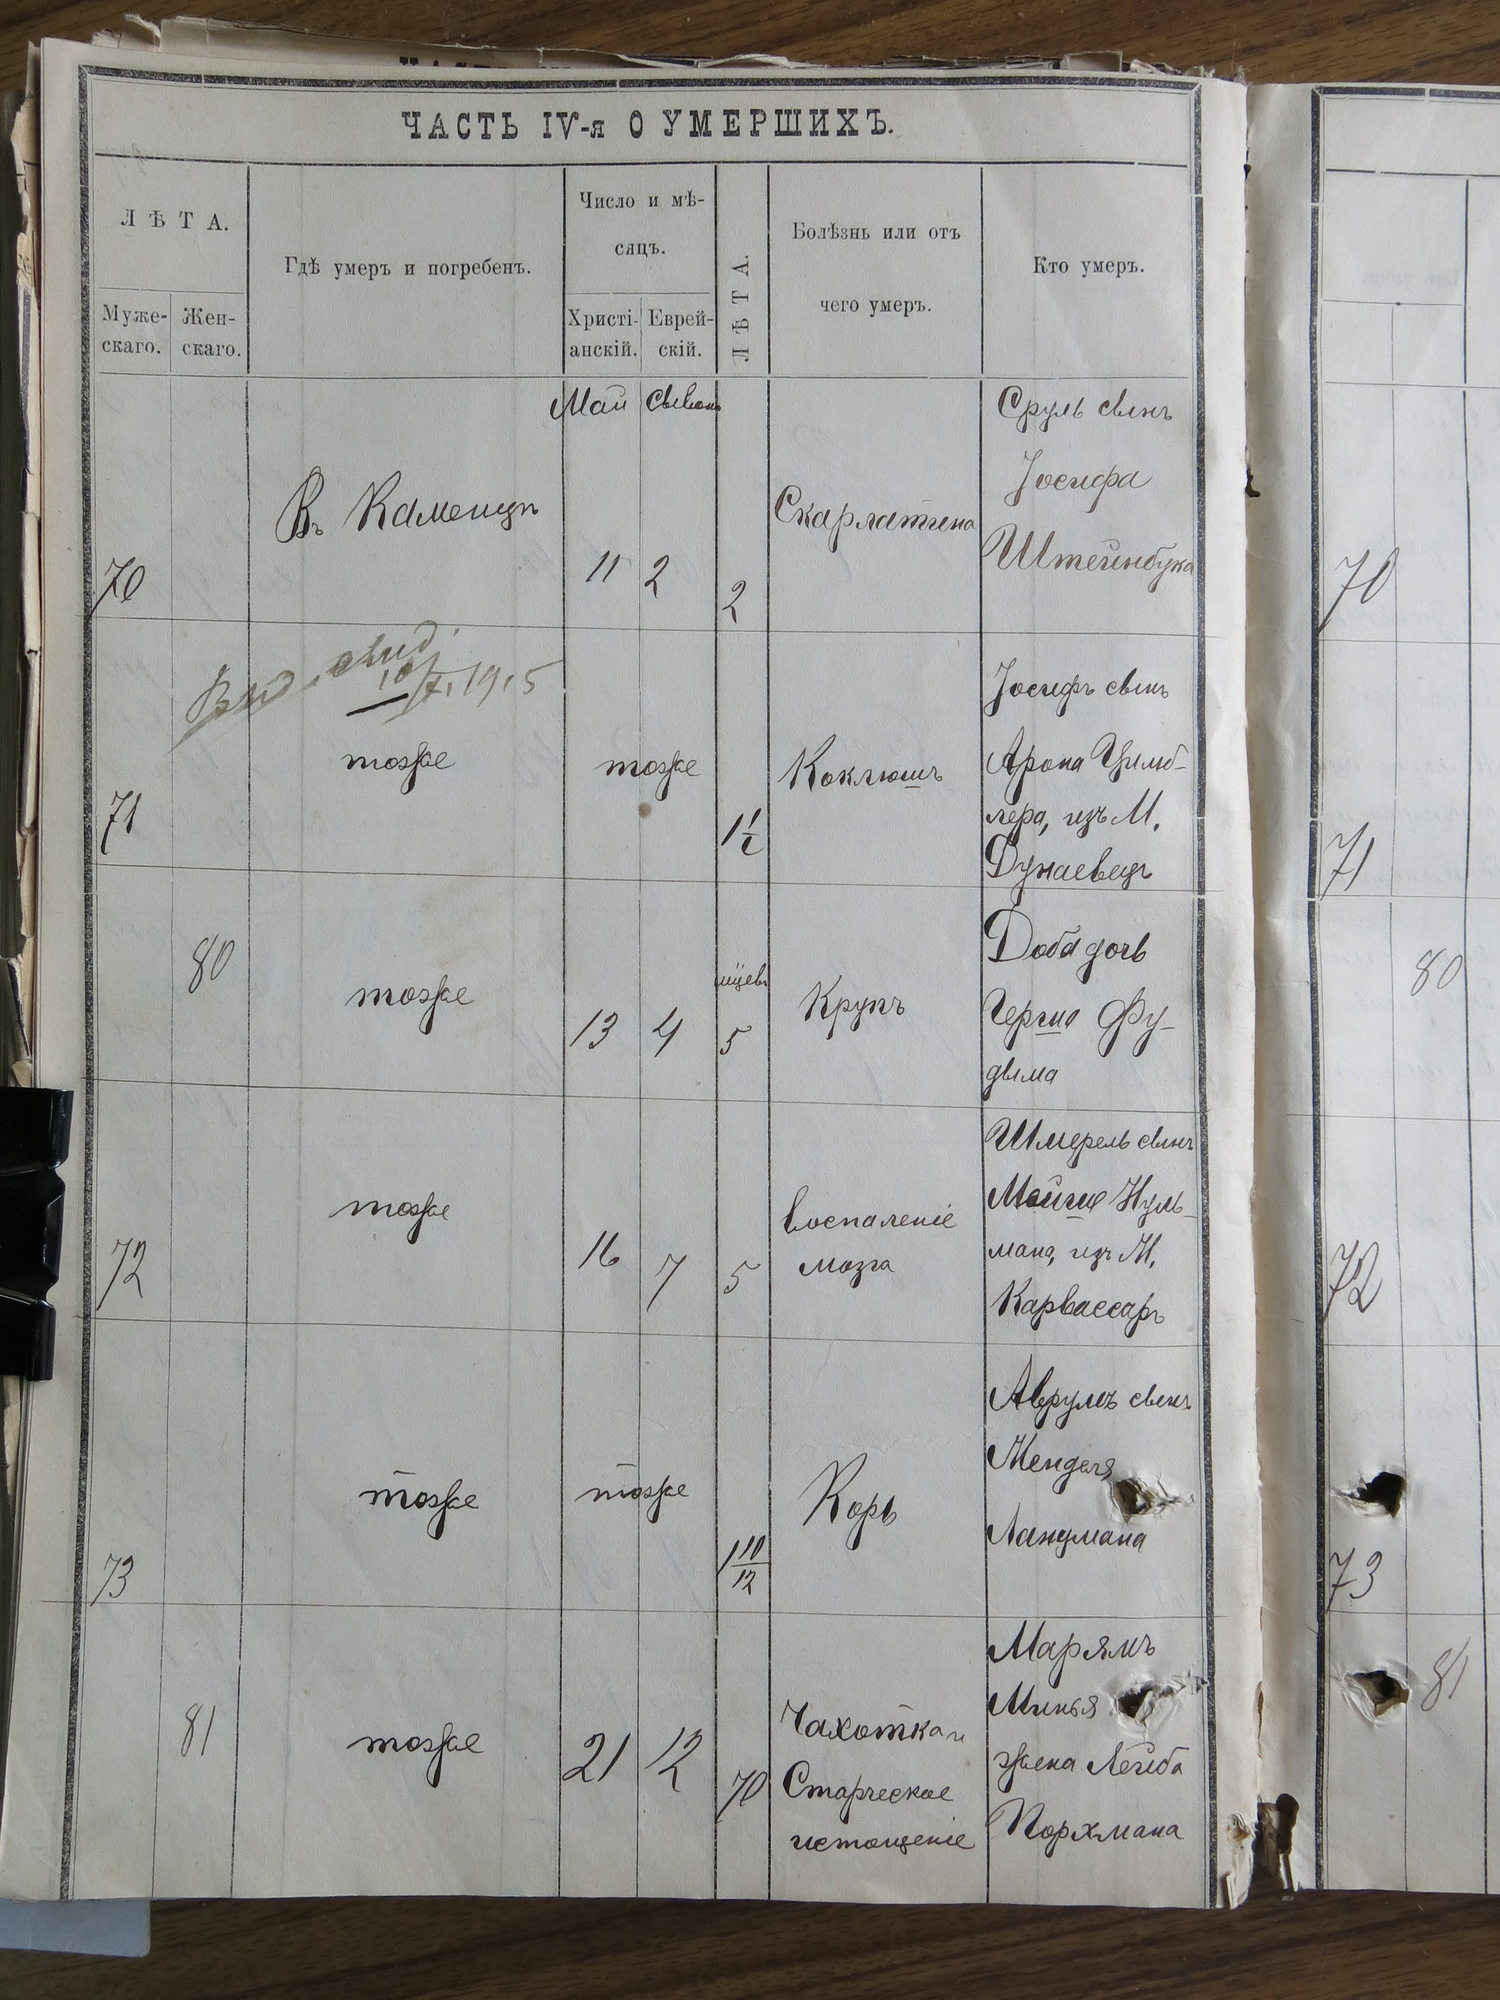 ЧАСТЬ IV-я О УМЕРШИХЪ.
ЛѢТА.
Муже-
скаго.
Жен-
скаго.
Гдѣ умеръ и погребенъ.
Число и мѣ-
сяцъ.
Христі-
анскій.
Еврей-
скій.
ЛѢТА.
Болѣзнь или отъ
чего умеръ.
Кто умеръ.
Май
Сивонъ
70
Въ Каменцѣ
11
2
2
Скарлатина
Сруль сынъ
Іосифа
Штейнбука
70
10/VI 1915
71
тоже
тоже
1½
Коклюшъ
Іосифъ сынъ
Арона
лера, изъ М.
Дунаевецъ
71
80
тоже
13
4
мцевъ
5
Крупъ
Доба дочь
Герша Фу-
дыма
80
72
тоже
16
7
5
Воспаленіе
мозга
Шмерель сынъ
Мойше Нуль-
мана, изъ М.
Карвассаръ
72
73
тоже
тоже
1 10/12
Корь
Аврумъ сынъ
Менделя
Ландмана
73
81
тоже
21
12
70
Чахотка и
Старческое
истощеніе
Марямъ
Минья
жена Лейба
Порхмана
81